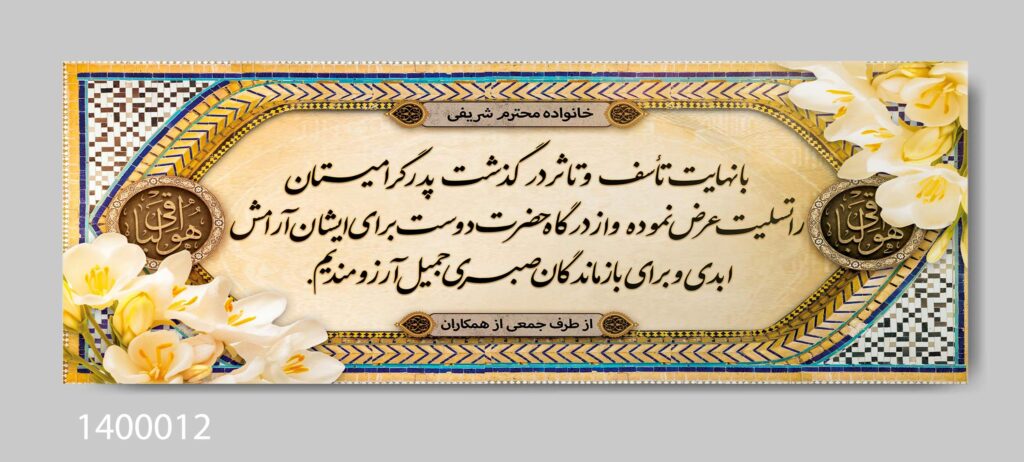 خانواده محترم شریفی
با نهایت تأسف و تاثر در گذشت پدر گرامیستان
را تسلیت عرض نموده و از درگاه حضرت دوست برای ایشان آرامش
ابدی و برای بازماندگان صبری جمیل آرزومندیم.
از طرف جمعی از همکاران
هو الباقی
هو الباقی
1400012